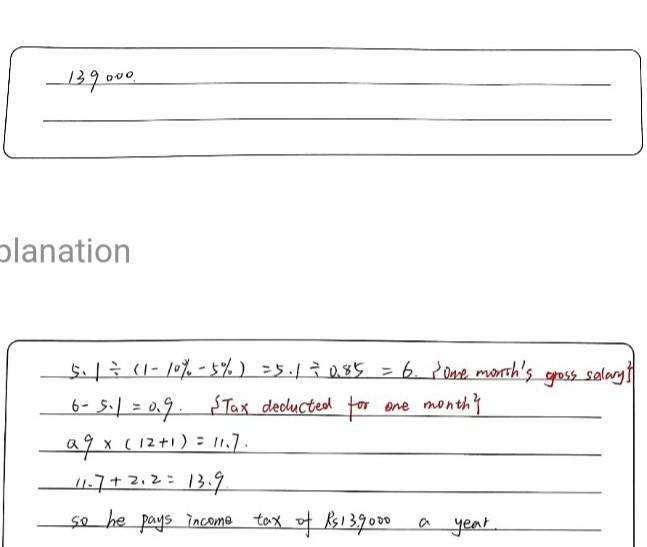 139000.
planation
5.1 ÷ (1 - 10% - 5%) = 5.1 ÷ 0.85 = 6. {One month's gross salary}
6 - 5.1 = 0.9. {Tax deducted for one month}
0.9 × (12+1) = 11.7.
11.7 + 2.2 = 13.9
so he pays income tax of Rs139000 a year.